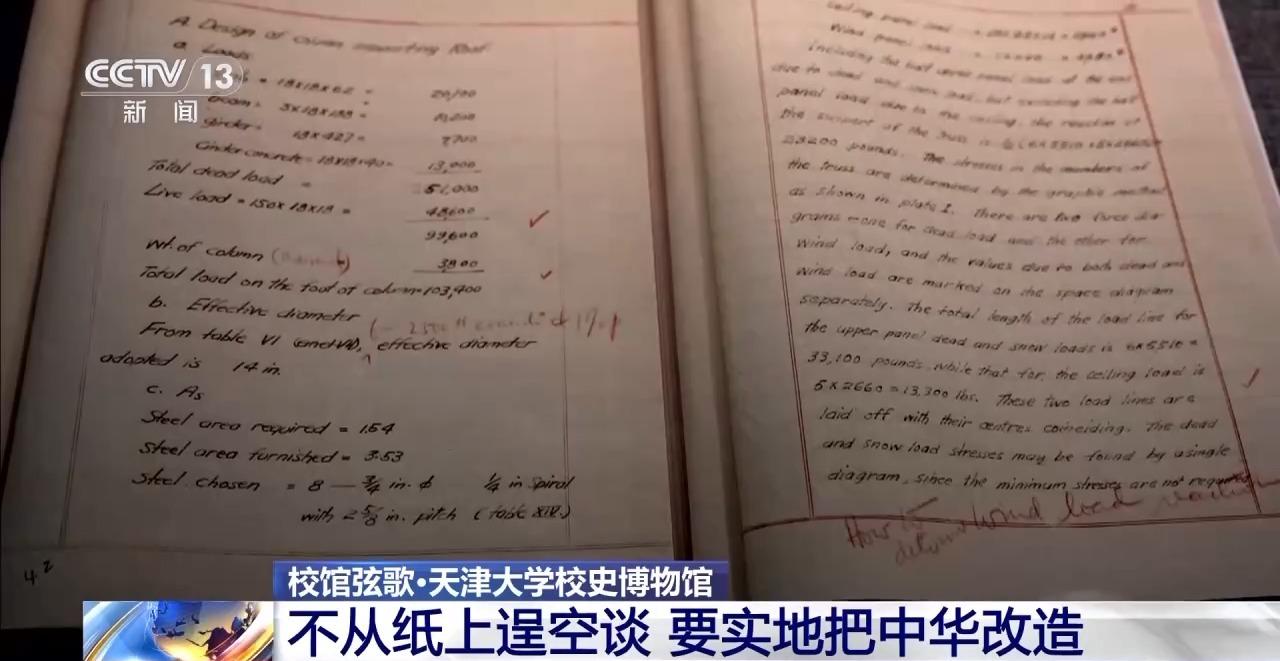 CCTV 13
新闻
A. Design of Column supporting Roof
a. Loads
= 18x18x62 = 20,100
Beam = 3x18x188 = 10,200
Girder = 18x427 = 7700
Cinder concrete = 18x18x40 = 13,000
Total dead load = 51,000
Live load = 150x18x18 = 48,600
99,600
Wt. of column 3800
Total load on the foot of column = 103,400
b. Effective diameter
From table VI (and VII), effective diameter
adopted is 14 in.
c. As
Steel area required = 1.54
Steel area furnished = 3.53
Steel chosen = 8 — 3/4 in. ϕ 1/4 in spiral
with 2 5/8 in. pitch (table XIV.)
42
Ceiling panel load
Wind panel load
Including the half upper panel load at the end
due to dead and snow load, but excluding the half
panel load due to the ceiling, the reaction at
the support of the truss is
23200 pounds. The stresses in the members of
the truss are determined by the graphic method
as shown in plate I. There are two force dia-
grams — one for dead load and the other for
wind load, and the values due to both dead and
wind load are marked on the space diagram
separately. The total length of the load line for
the upper panel dead and snow loads is 6x5510 =
33,100 pounds, while that for the ceiling load is
5x2660 = 13,300 lbs. These two load lines are
laid off with their centres coinciding. The dead
and snow load stresses may be found by a single
diagram, since the minimum stresses are not required
How is
wind load
校馆弦歌·天津大学校史博物馆
不从纸上逞空谈 要实地把中华改造